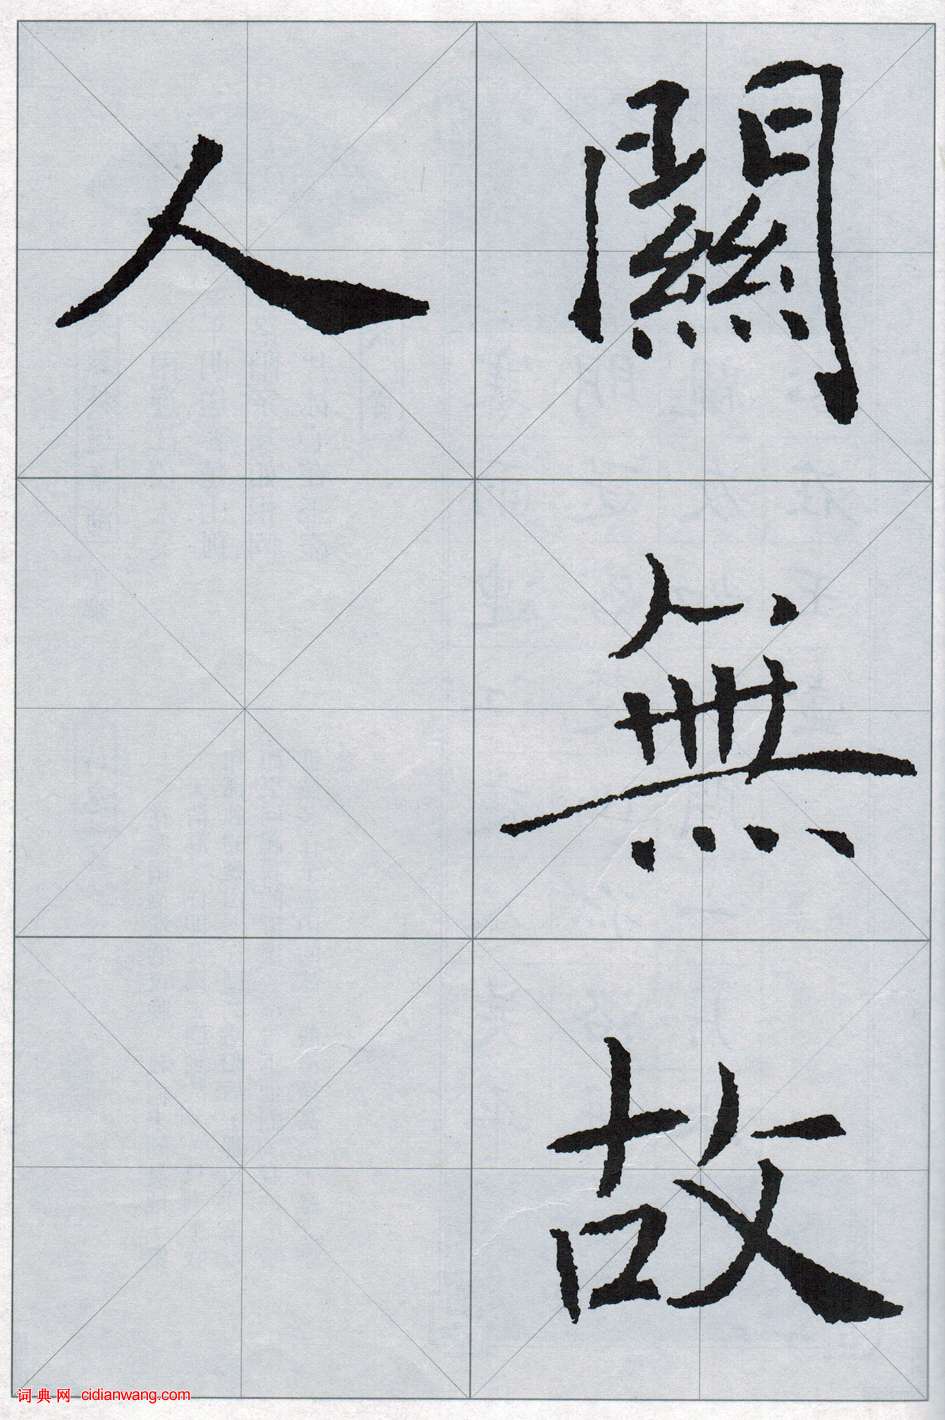 關無故
人
词典网 cidianwang.com